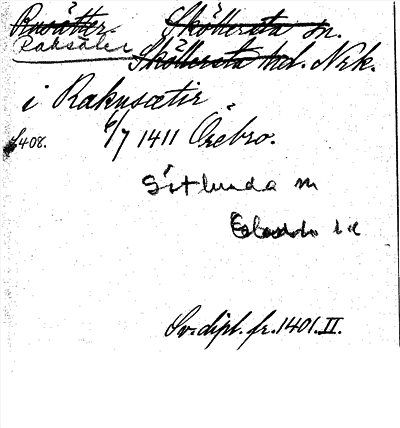 Rusätter. Sköllersta sn.
Raksäter Sköllersta hd. Nrk.
i Rakusætir
S408. 6/7 1411 Örebro.
Götlunda sn
hd
Sv. dipl. fr. 1401. II.